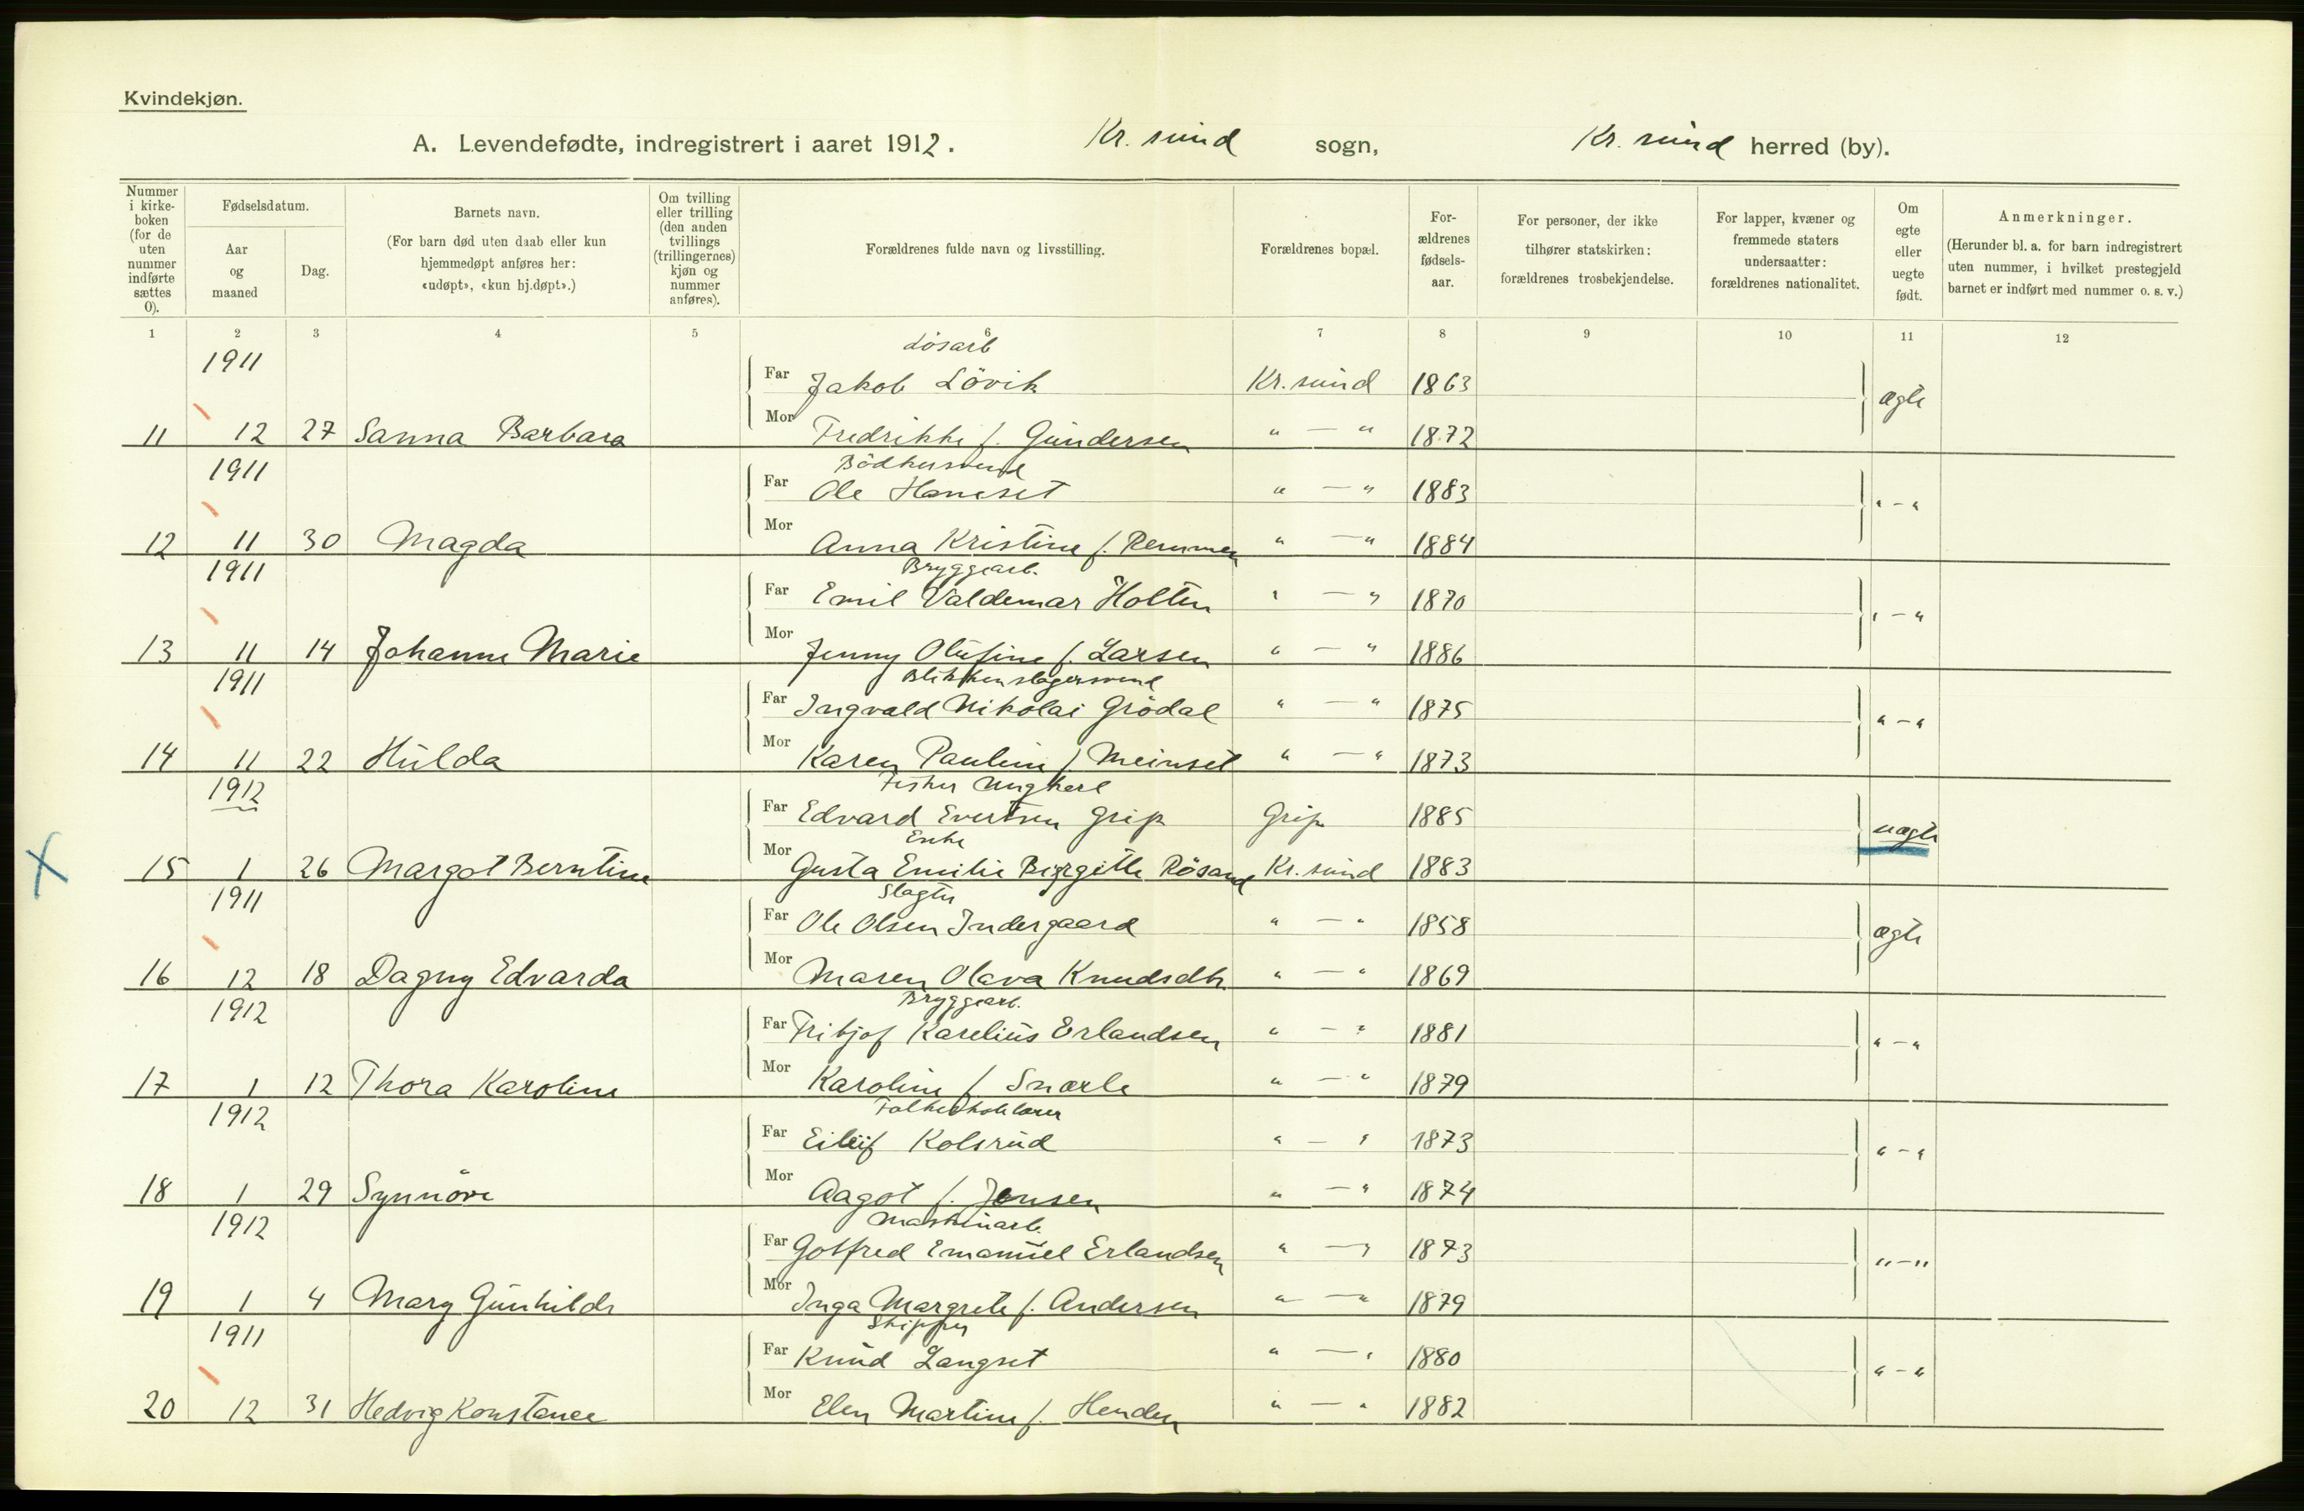 Kvindekjøn.
A. Levendefødte, indregistrert i aaret 1912. Kr. sund sogn, Kr. sund herred (by).
Nummer i kirkeboken (for de uten nummer indførte sættes 0).
Fødselsdatum.
Aar og maaned
Dag.
Barnets navn.
(For barn død uten daab eller kun hjemmedøpt anføres her: «udøpt», «kun hj.døpt».)
Om tvilling eller trilling (den anden tvillings (trillingernes) kjøn og nummer anføres).
Forældrenes fulde navn og livsstilling.
Forældrenes bopæl.
Forældrenes fødselsaar.
For personer, der ikke tilhører statskirken: forældrenes trosbekjendelse.
For lapper, kvæner og fremmede staters undersaatter: forældrenes nationalitet.
Om egte eller uegte født.
Anmerkninger.
(Herunder bl. a. for barn indregistrert uten nummer, i hvilket prestegjeld barnet er indført med nummer o. s. v.)
1 2 3 4 5 6 7 8 9 10 11 12
1911 Løsarb
Far Jakob Lövik Kr. sund 1863 ægte
11 12 27 Sanna Barbara Mor Fredrikke f. Gundersen " — " 1872
1911 Bödkersvend
Far Ole Haneset " — " 1883 " — "
12 11 30 Magda Mor Anna Kristine f. Remmen " — " 1884
1911 Bryggearb.
Far Emil Valdemar Holten " — " 1870 " — "
13 11 14 Johanne Marie Mor Jenny Olufine f. Larsen " — " 1886
1911 Blikkenslagersvend
Far Ingvald Nikolai Grödal " — " 1875 " — "
14 11 22 Hulda Mor Karen Pauline f. Meinset " — " 1873
1912 Fisker Ungkarl
Far Edvard Evertsen Grip Grip 1885 uægte
Enke
X 15 1 26 Margot Berntine Mor Gusta Emilie Birgitte Rösand Kr. sund 1883
1911 Slagter
Far Ole Olsen Indergaard " — " 1858 ægte
16 12 18 Dagny Edvarda Mor Maren Olava Knudsdtr. " — " 1869
1912 Bryggearb.
Far Fritjof Karelius Erlandsen " — " 1881 " — "
17 1 12 Thora Karoline Mor Karoline f Snarle " — " 1879
1912 Folkeskolelærer
Far Eileif Kolsrud " — " 1873 " — "
18 1 29 Synnöve Mor Aagot f. Jensen " — " 1874
1912 Maskinarb.
Far Gotfred Emanuel Erlandsen " — " 1873 " — "
19 1 4 Mary Gunhild Mor Inga Margrete f. Andersen " — " 1879
1911 Skipper
Far Knud Langset " — " 1880 " — "
20 12 31 Hedvig Konstance Mor Elen Martine f. Henden " — " 1882